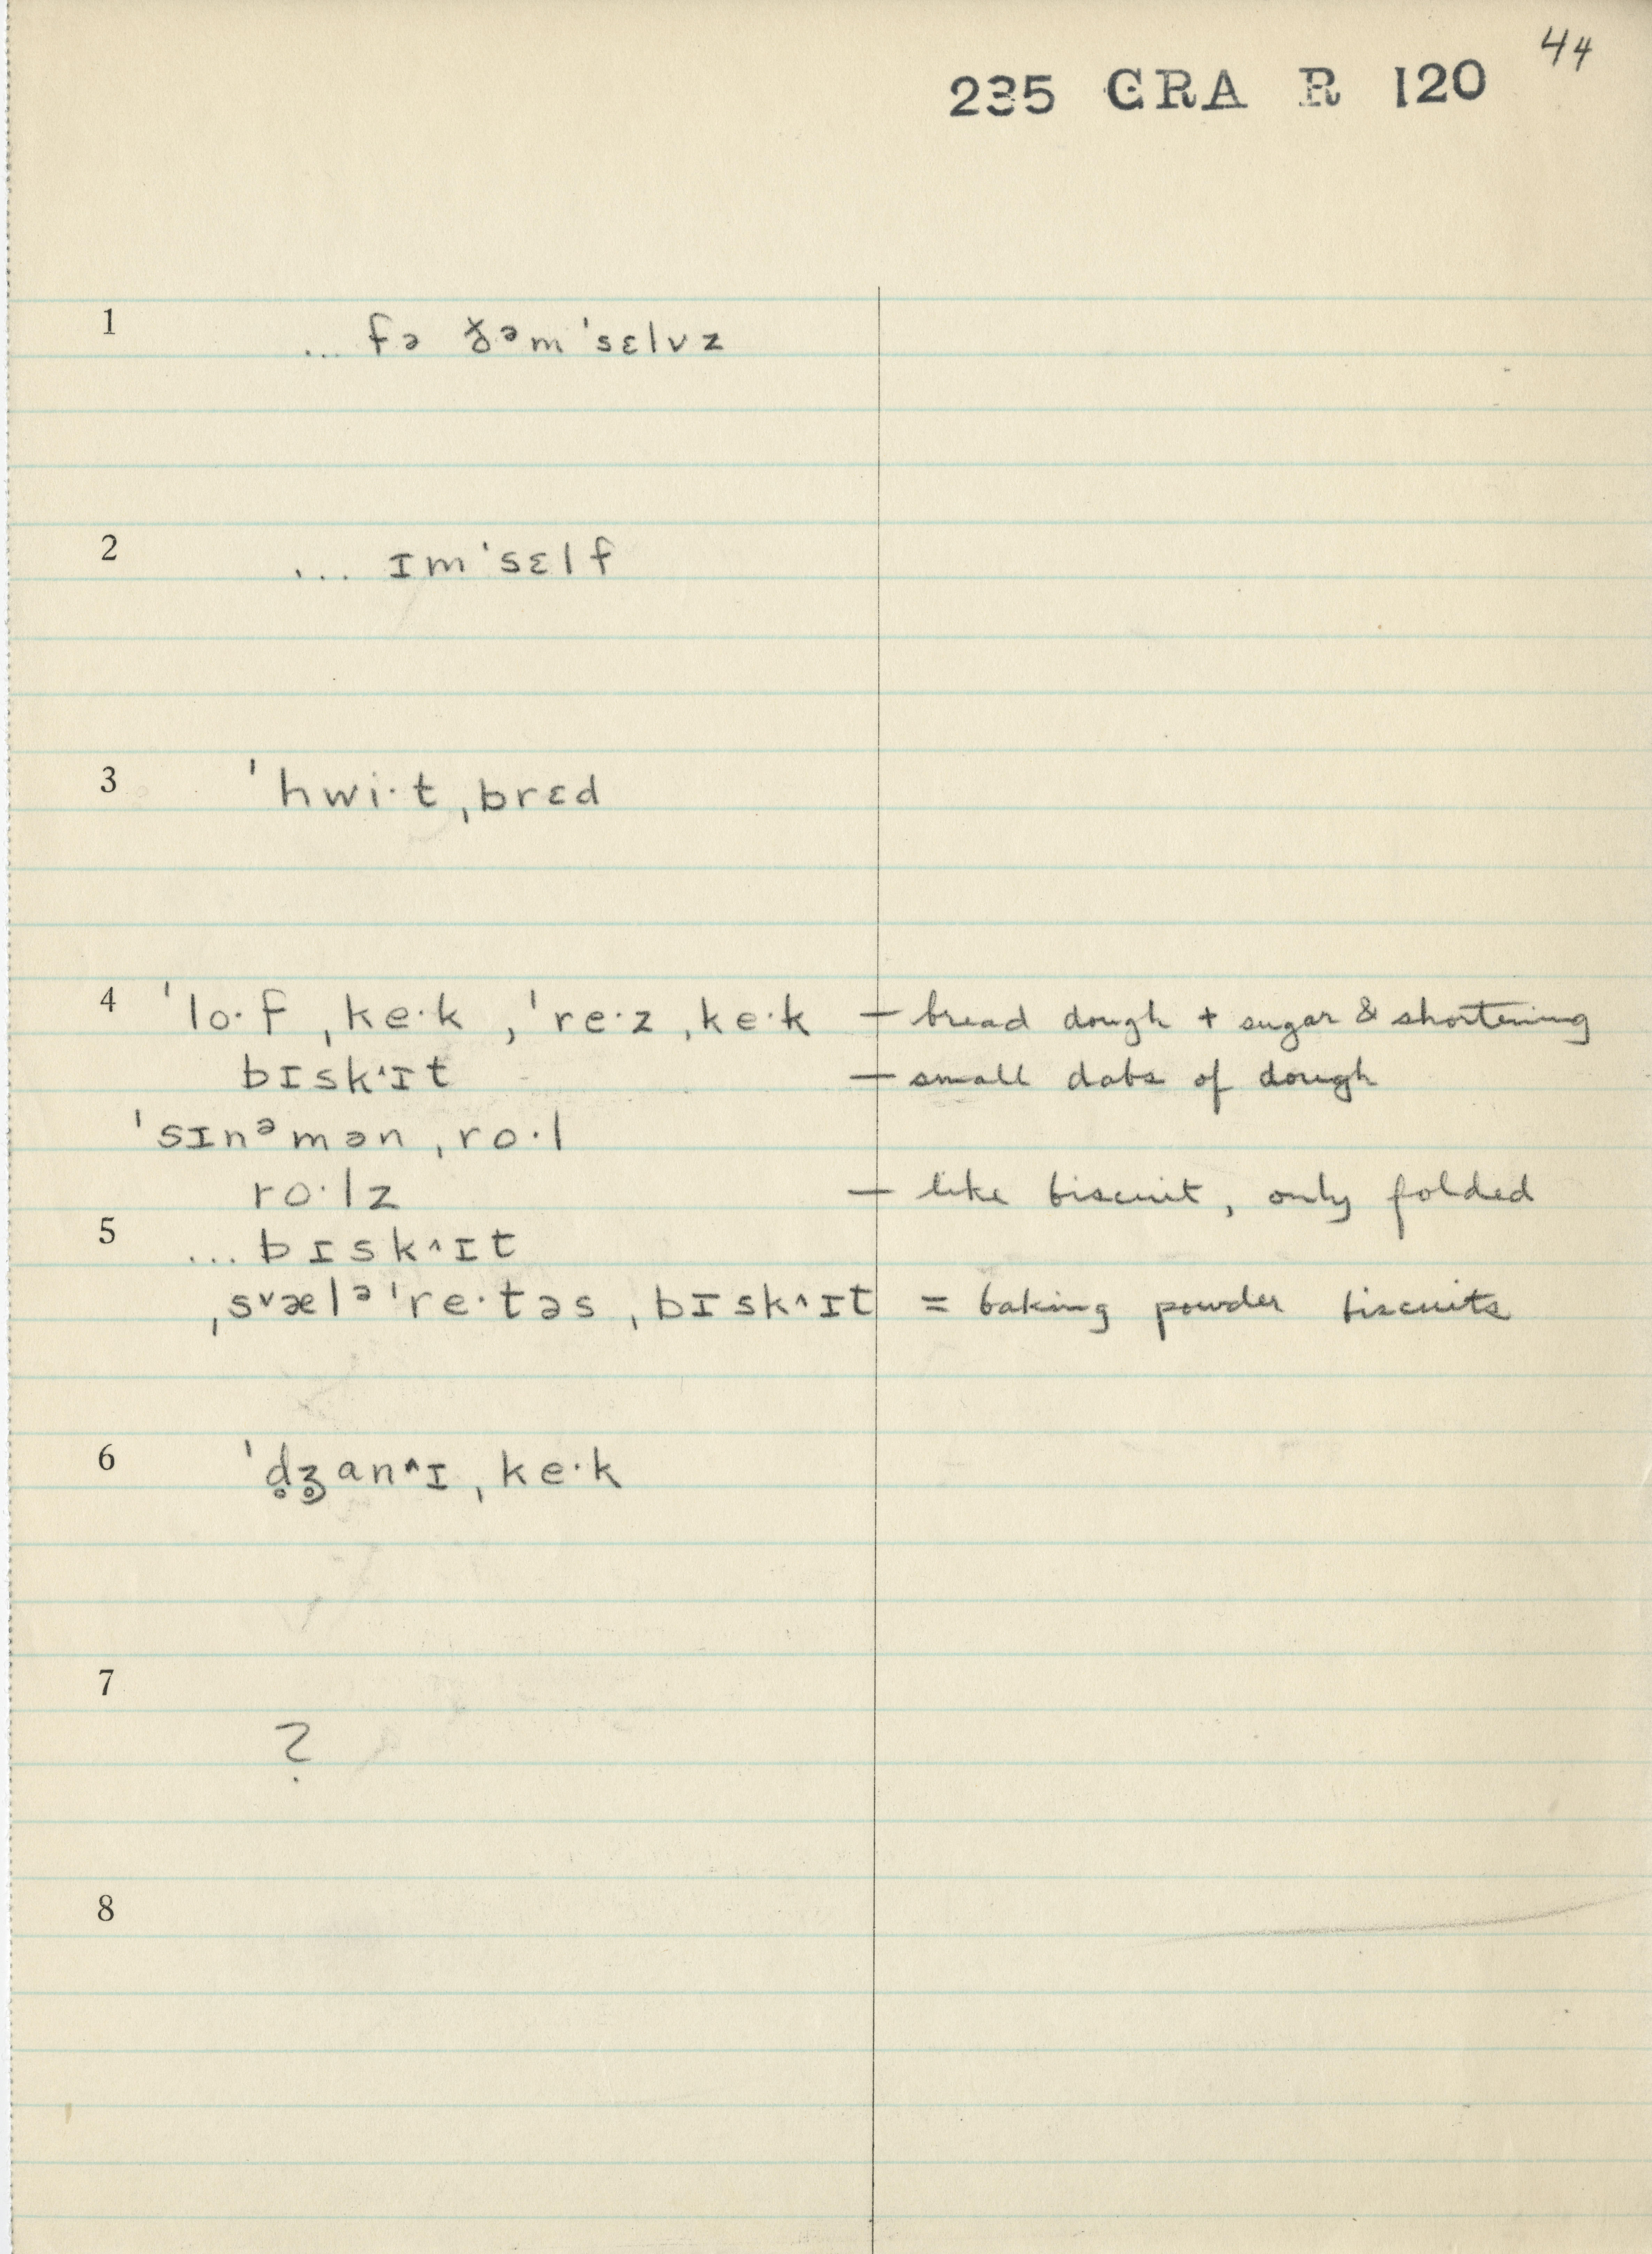 44
235 GRA R 120
1 ... fə ðᵊm ˈsɛlvz
2 ... ɪmˈsɛlf
3 ˈhwi·t ˌbrɛd
4 ˈlo·f ˌke·k , ˈre·z ˌke·k — bread dough + sugar & shortening
bɪskˈɪt — small dabs of dough
ˈsɪnᵊmən ˌro·l
ro·lz — like biscuit, only folded
5 ... bɪsk^ɪt
ˌsᵛælᵊˈre·təs ˌbɪsk^ɪt = baking powder biscuits
6 ˈd̥ʒ̊an^ɪ ˌke·k
7
?
8